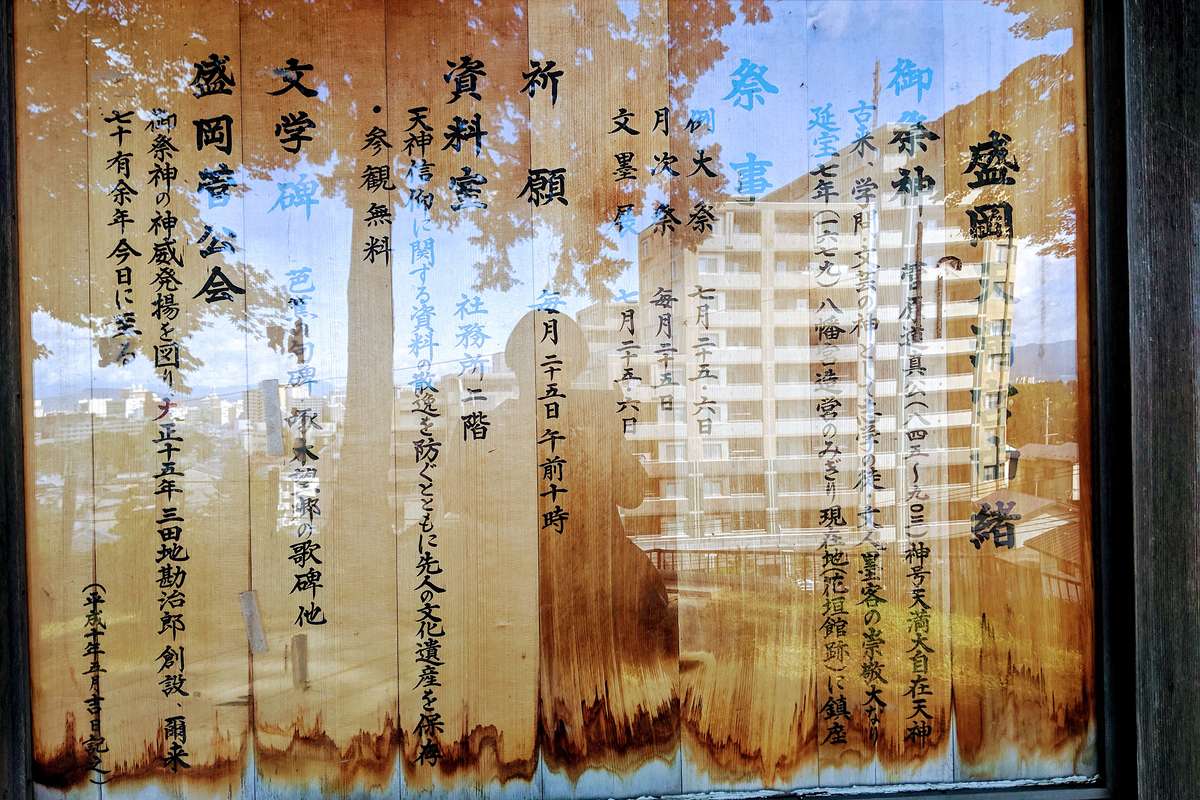 盛岡天満宮由緒
御祭神 菅原道真公(八四五〜九〇三)神号天満大自在天神
古来、学問・文芸の神として学の徒・文人墨客の崇敬大なり
延宝七年(一六七九)八幡宮造営のみぎり現在地(花垣館跡)に鎮座
祭事
例大祭 七月二十五・六日
月次祭 毎月二十五日
文墨展 七月二十五・六日
祈願 毎月二十五日午前十時
資料室 社務所二階
天神信仰に関する資料の散逸を防ぐとともに先人の文化遺産を保存
・参観無料
文学碑 芭蕉句碑 啄木望郷の歌碑他
盛岡菅公会
御祭神の神威発揚を図り、大正十五年三田地勘治郎創設、爾来
七十有余年今日に至る
(平成十年五月吉日記之)